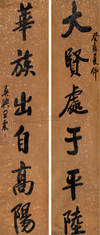 大賢處于平陸
華族出自高陽